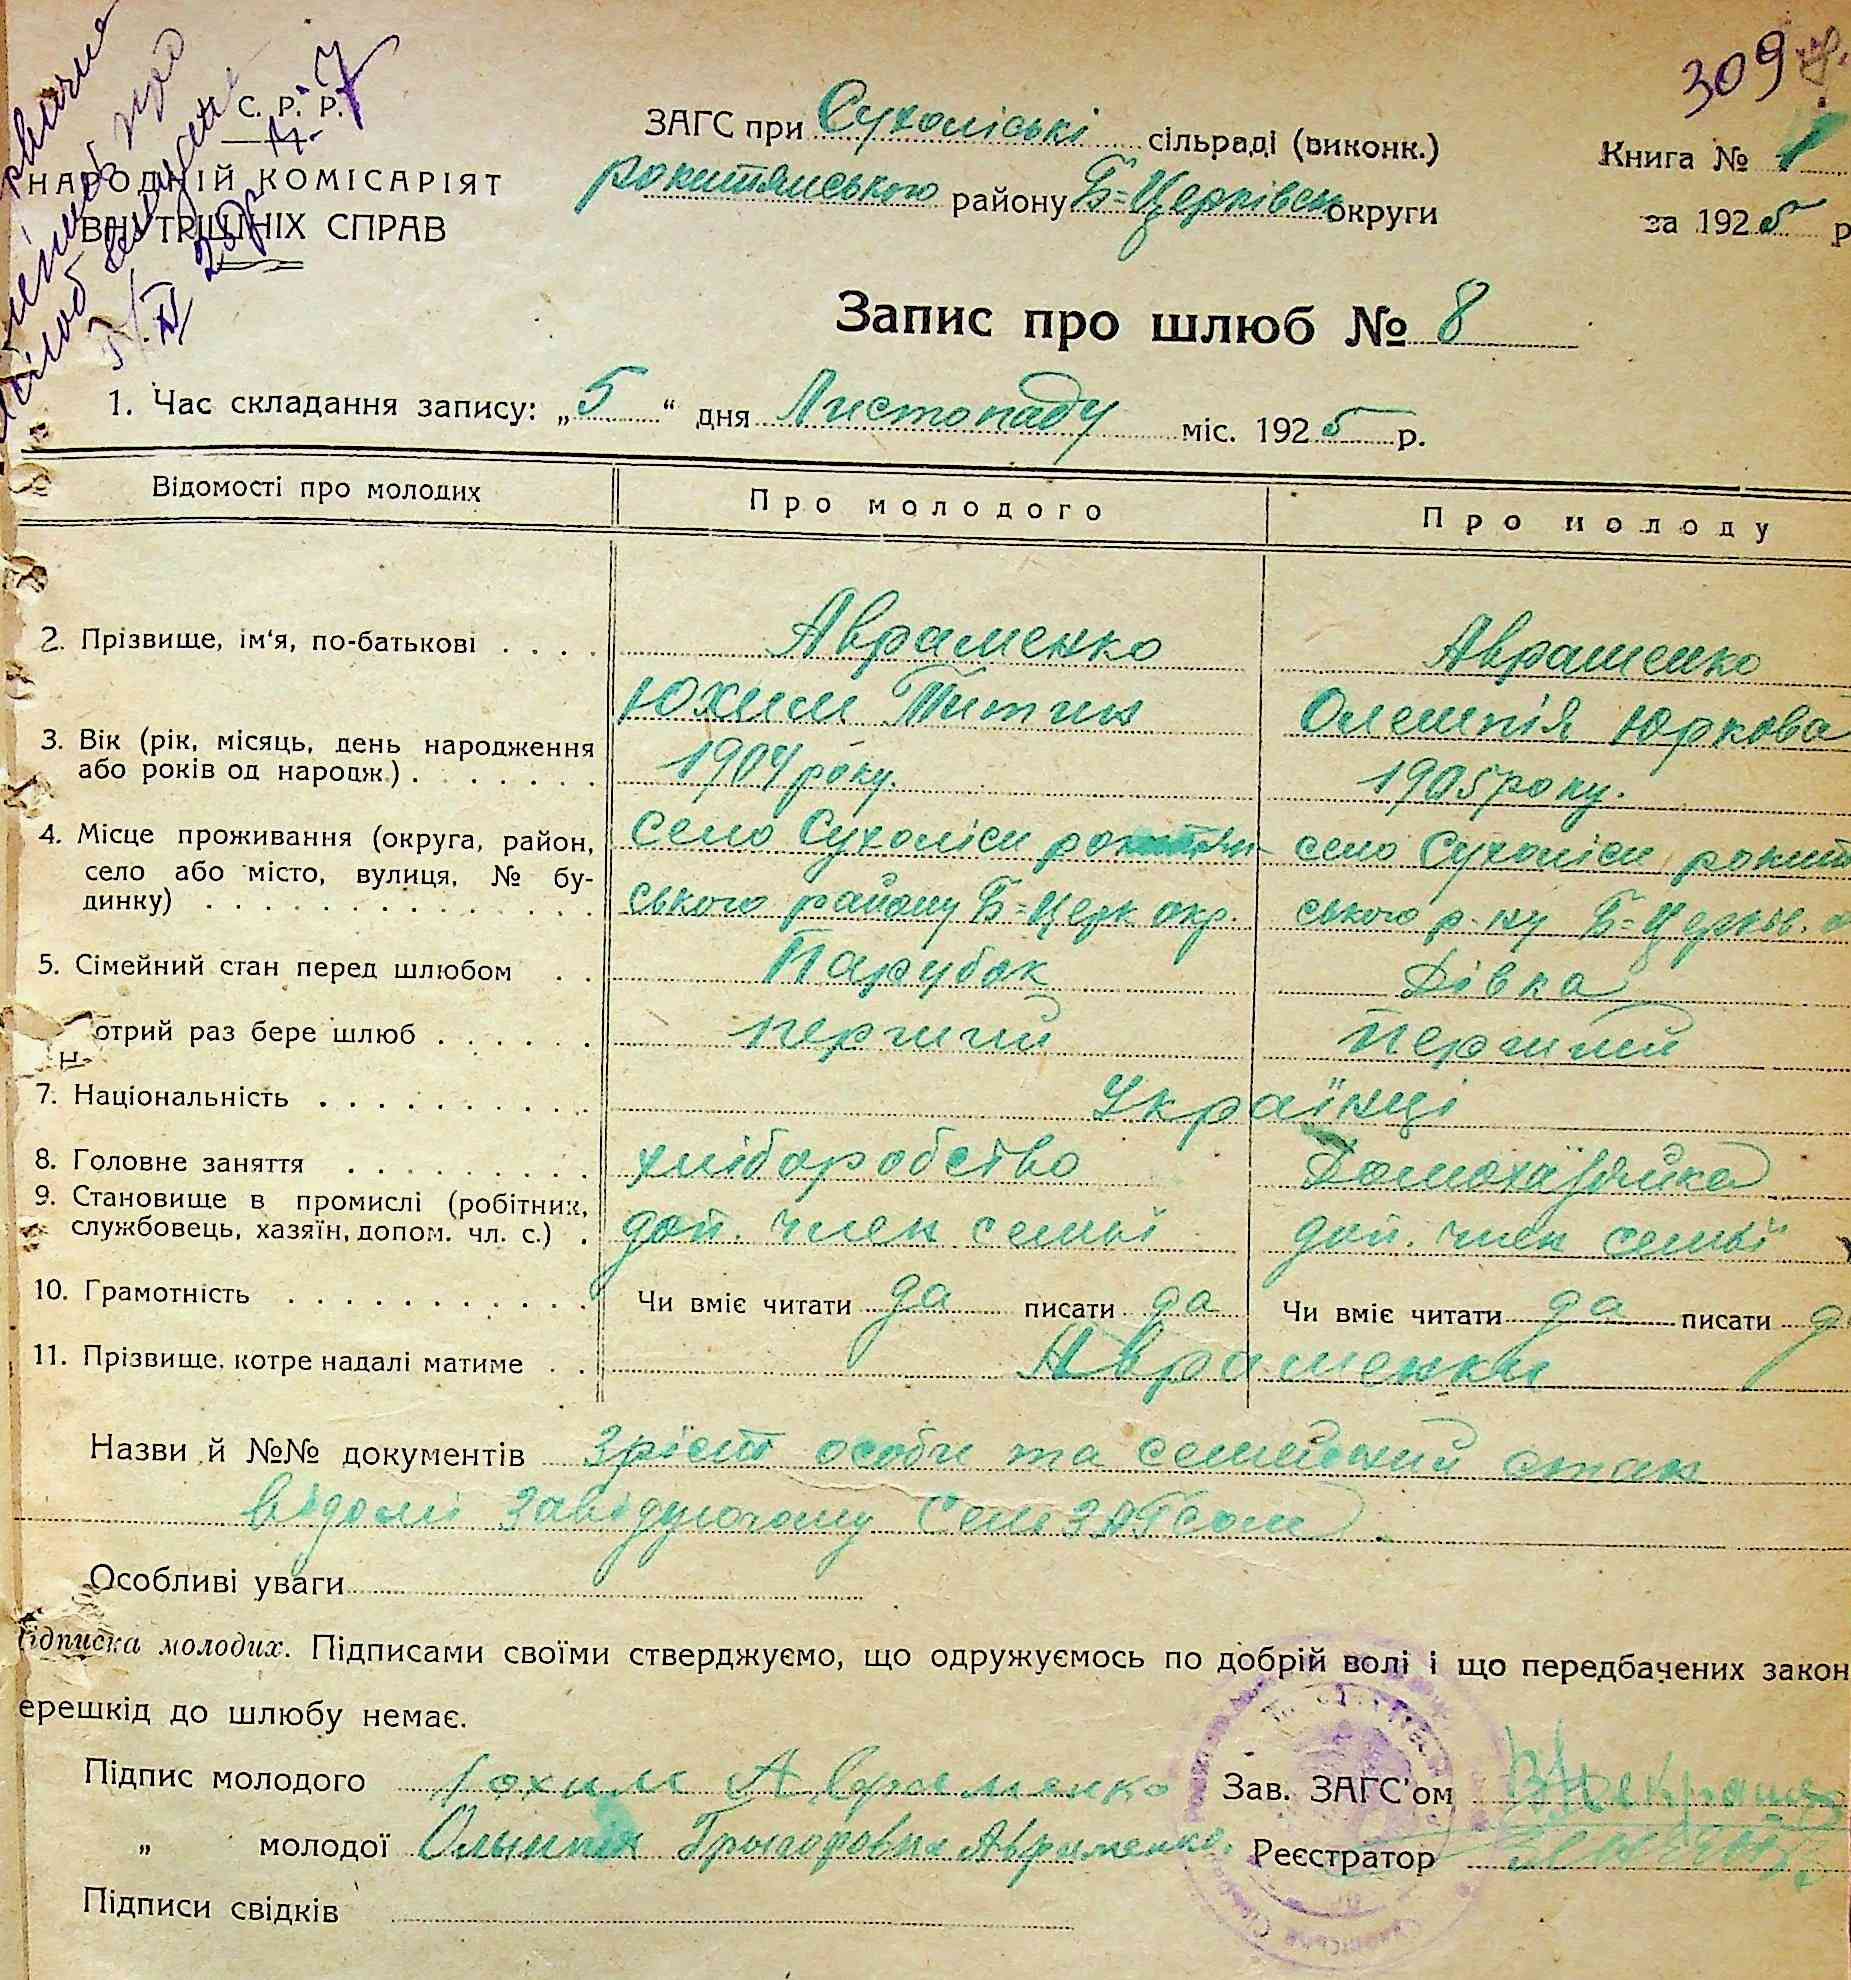 309
С. Р. Р.
НАРОДНІЙ КОМІСАРІЯТ
ВНУТРІШНІХ СПРАВ
ЗАГС при Сухоліські сільраді (виконк.)
рокитянського району Б=Церківськ округи
Книга № 1
за 1925 р
Запис про шлюб № 8
1. Час складання запису: „5“ дня Листопаду міс. 1925 р.
Відомості про молодих Про молодого Про молоду
2. Прізвище, ім'я, по-батькові Авраменко Авраменко
Юхим Титин Олемпія Юркова
3. Вік (рік, місяць, день народження
або років од народж.) 1904 року. 1905 року.
4. Місце проживання (округа, район, село Сухоліси рокитян- село Сухоліси рокит
село або місто, вулиця, № бу-
динку) ського району Б=Церк окр. ського р-ну Б=Церків.
5. Сімейний стан перед шлюбом Парубок Дівка
отрий раз бере шлюб перший Перший
7. Національність Українці
8. Головне заняття хліборобство Домохазяйка
9. Становище в промислі (робітник,
службовець, хазяїн, допом. чл. с.) доп. член семьі доп. член семьї
10. Грамотність Чи вміє читати да писати да Чи вміє читати да писати д
11. Прізвище, котре надалі матиме Авраменки
Назви й №№ документів Зріст особи та семейний стан
відомі Завідуючому Сель ЗАГСом.
Особливі уваги
ідписка молодих. Підписами своїми стверджуємо, що одружуємось по добрій волі і що передбачених закон
ерешкід до шлюбу немає.
Підпис молодого Юхим Авраменко Зав. ЗАГС'ом
„ молодої Олымпія Григоровна Авраменко. Реєстратор
Підписи свідків